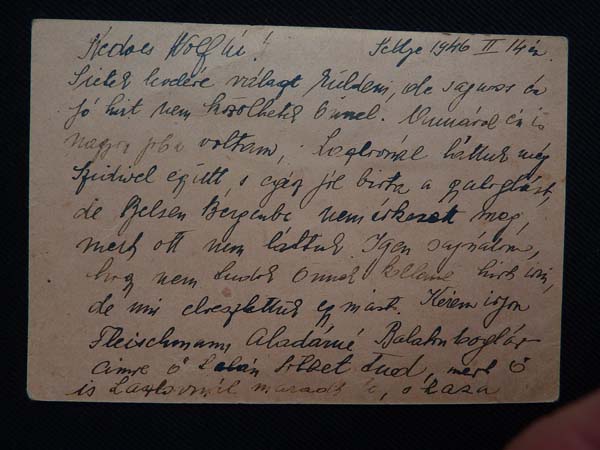 Kedves Wolf úr! Sellye 1946 II 14 én
Sietek levelére választ küldeni, de sajnos én
jó hirt nem közölhetek Önnel. Annával én is
nagyon jóba voltam, láttuk még
Szidivel együtt s egész jól birta a gyaloglást,
de Belsen Bergenbe nem érkezett meg,
mert ott nem láttuk Igen sajnálom,
hogy nem tudok Önnek kellemes hirt irni,
de mi elvesztettük egymást. Kérem irjon
Fleischmann Aladárné Balatonboglár
cimre ő talán többet tud, mert ő
is maradt le, ő haza